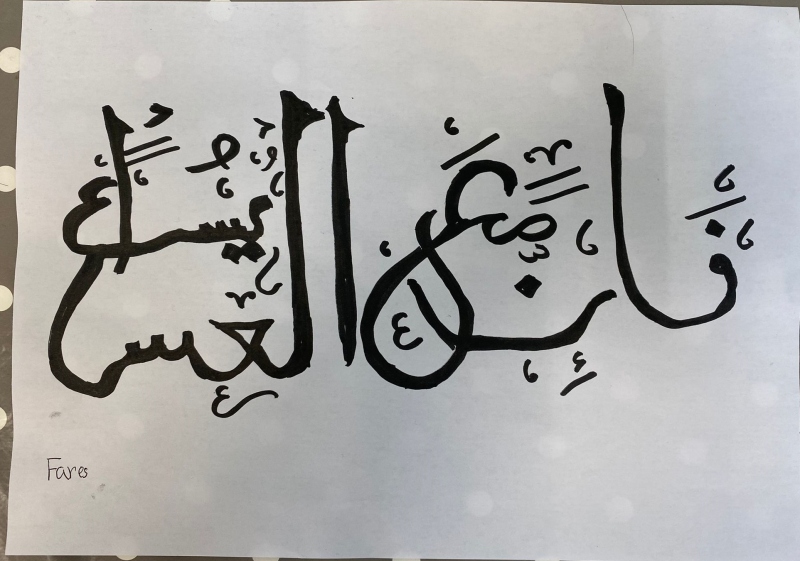 فَإِنَّ مَعَ الْعُسْرِ يُسْرًا
Fares